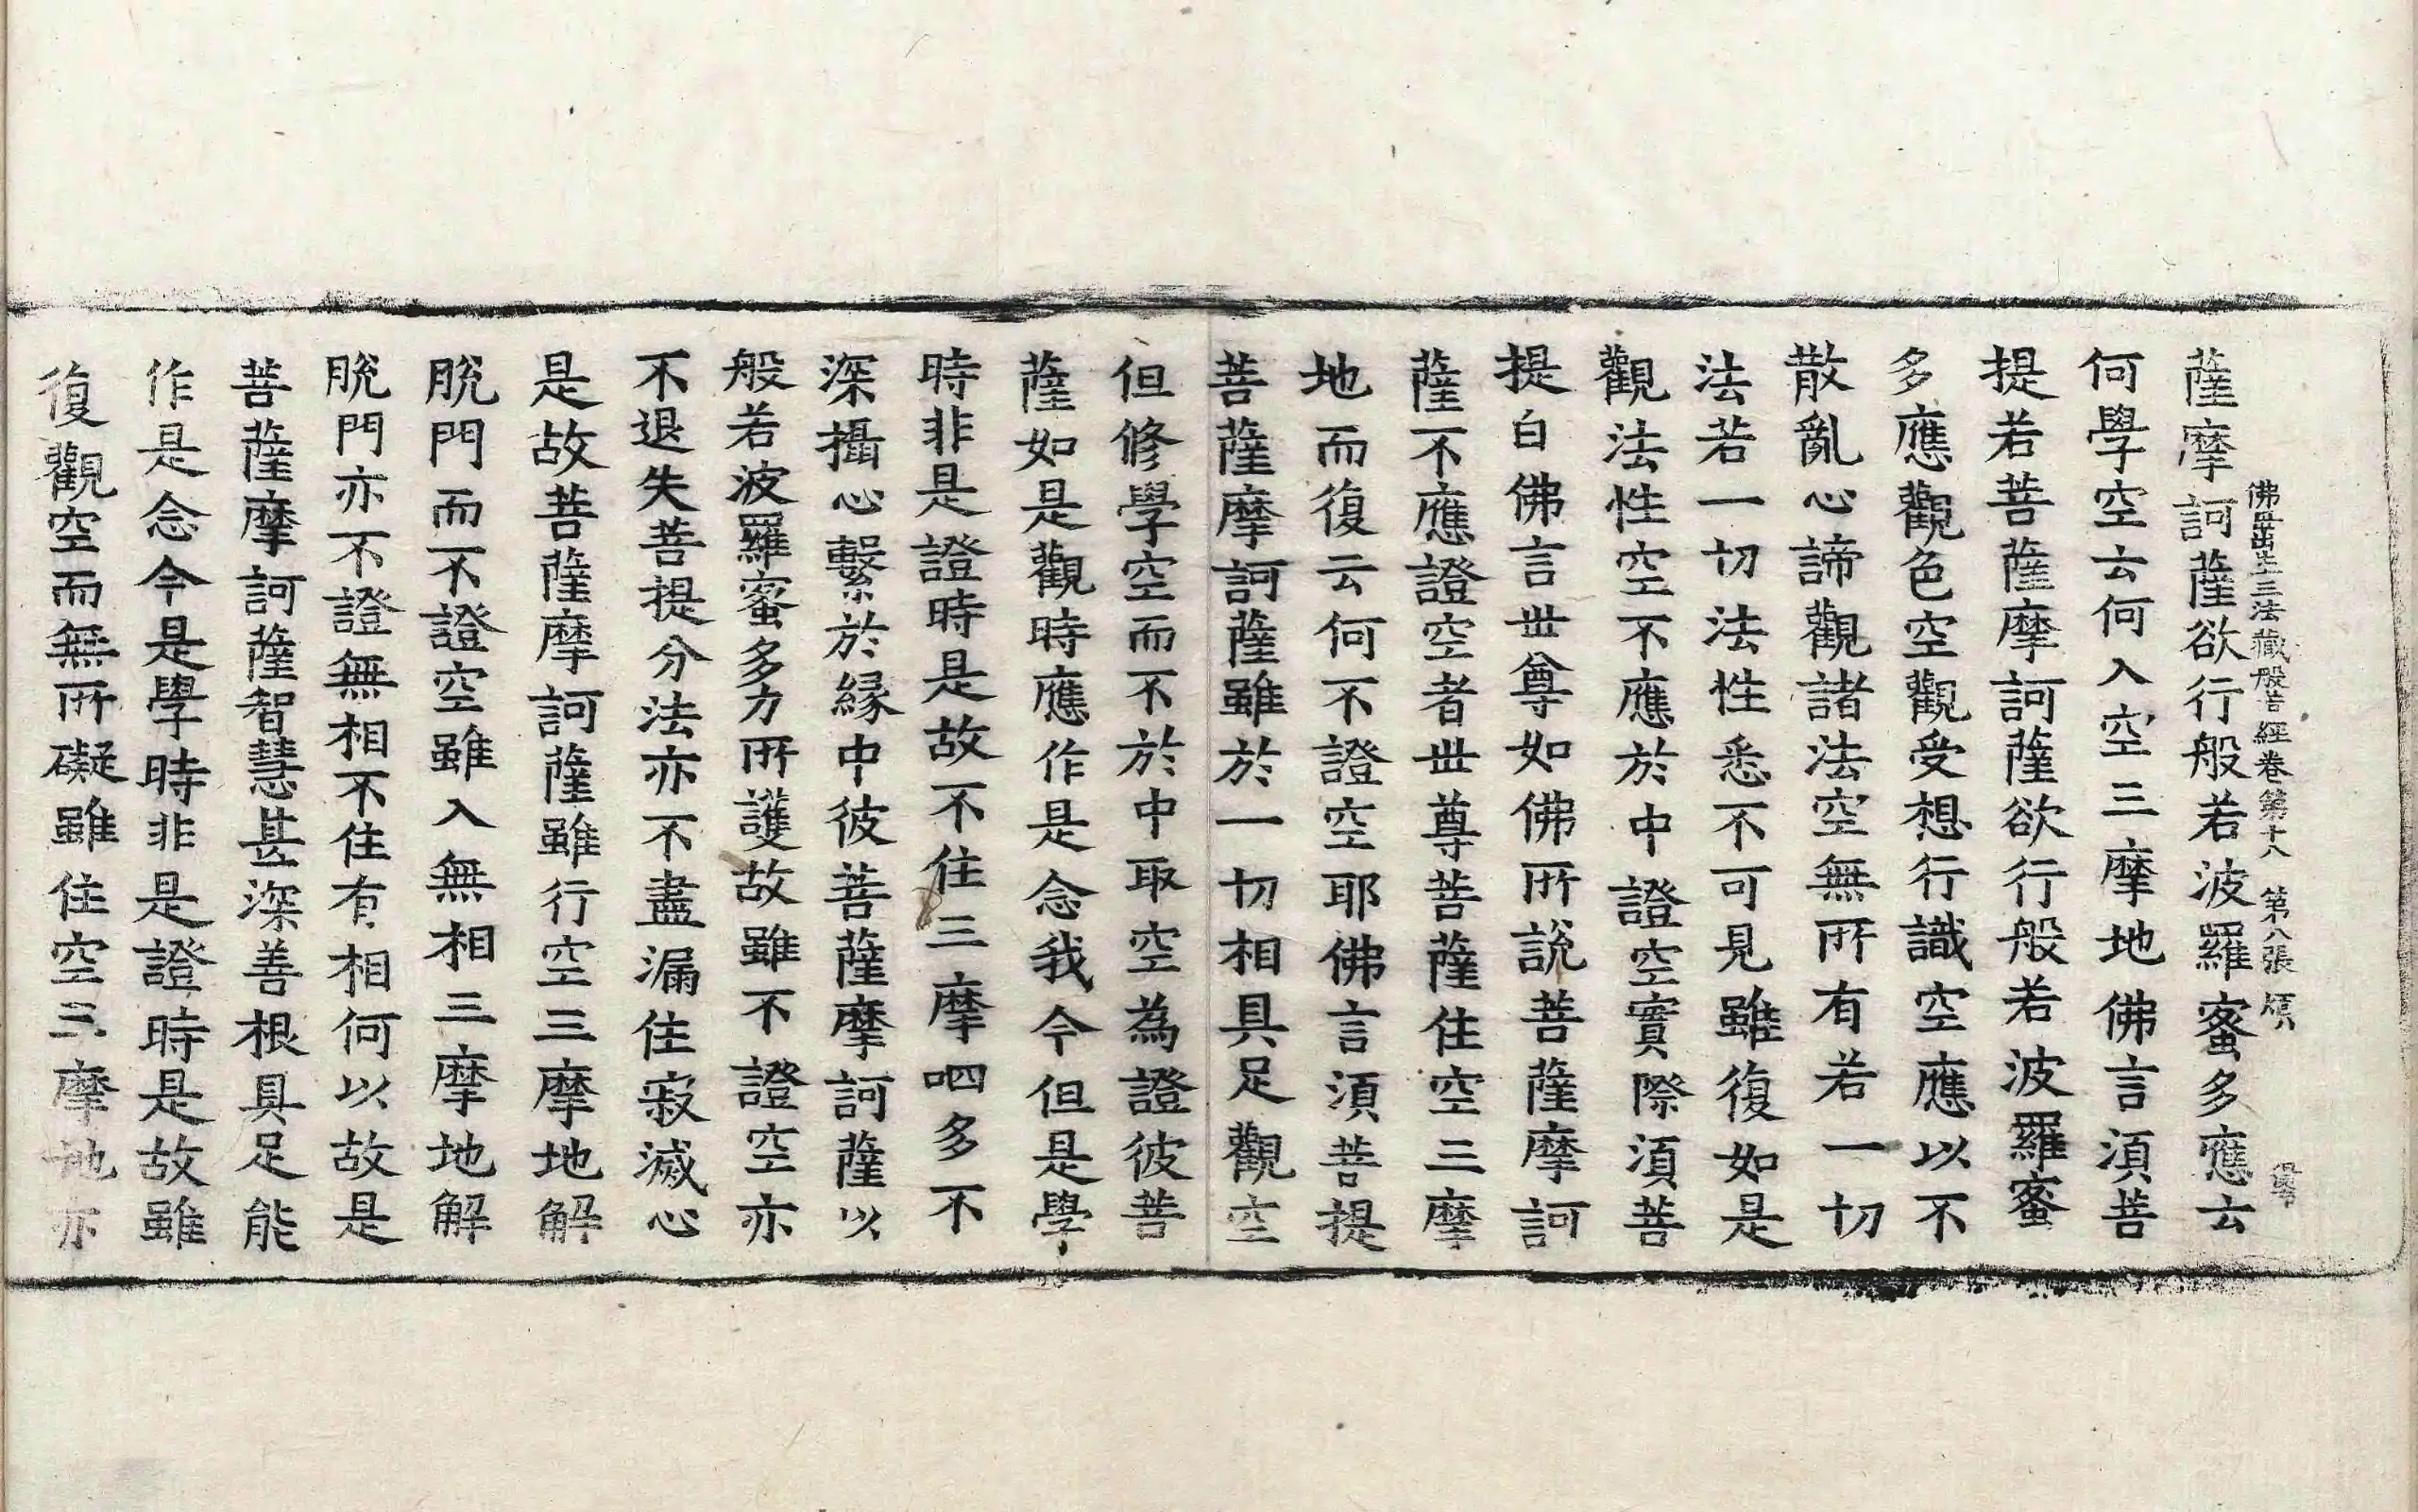 薩摩訶薩欲行般若波羅蜜多應云
佛母出生三法藏般若經卷第十八 第八張
何學空云何入空三摩地佛言須菩
提若菩薩摩訶薩欲行般若波羅蜜
多應觀色空觀受想行識空應以不
散亂心諦觀諸法空無所有若一切
法若一切法性悉不可見雖復如是
觀法性空不應於中證空實際須菩
提白佛言世尊如佛所說菩薩摩訶
薩不應證空者世尊菩薩住空三摩
地而復云何不證空耶佛言須菩提
菩薩摩訶薩雖於一切相具足觀空
但修學空而不於中取空為證彼菩
薩如是觀時應作是念我今但是學
時非是證時是故不住三摩呬多不
深攝心繫於緣中彼菩薩摩訶薩以
般若波羅蜜多力所護故雖不證空亦
不退失菩提分法亦不盡漏住寂滅心
是故菩薩摩訶薩雖行空三摩地解
脫門而不證空雖入無相三摩地解
脫門亦不證無相不住有相何以故是
菩薩摩訶薩智慧甚深善根具足能
作是念今是學時非是證時是故雖
復觀空而無所礙雖住空三摩地亦